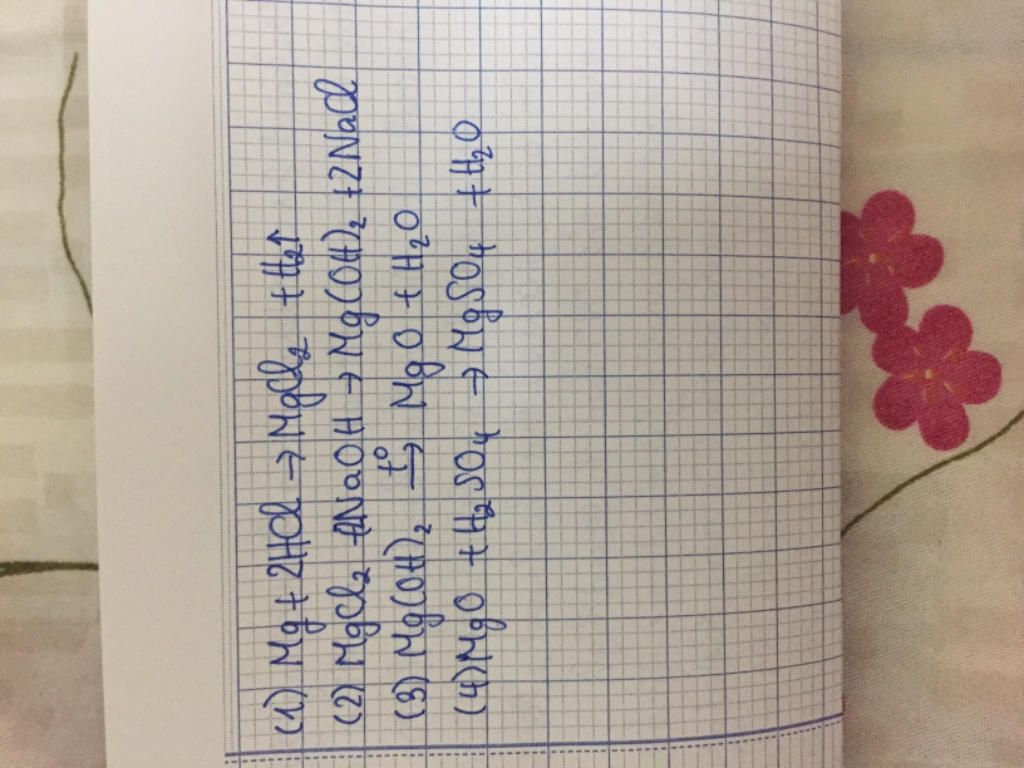 (1) Mg + 2HCl → MgCl₂ + H₂↑
(2) MgCl₂ + 2NaOH → Mg(OH)₂ + 2NaCl
(3) Mg(OH)₂ —t°→ MgO + H₂O
(4) MgO + H₂SO₄ → MgSO₄ + H₂O